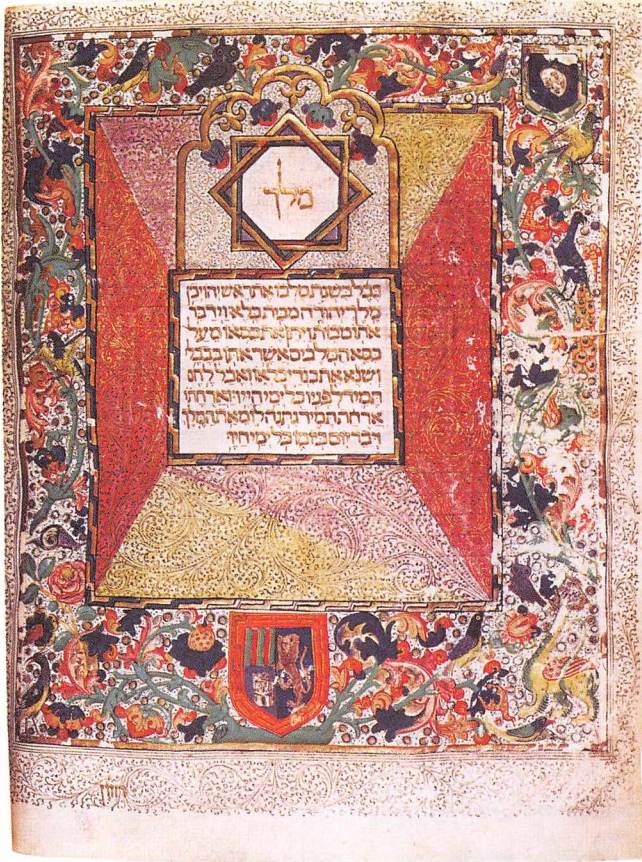 מלך
בבל בשנת מלכו את ראש יהויכן
מלך יהודה מבית כלא וידבר
אתו טבות ויתן את כסאו מעל
כסא המלכים אשר אתו בבבל
ושנא את בגדי כלאו ואכל לחם
תמיד לפניו כל ימי חייו וארחתו
ארחת תמיד נתנה לו מאת המלך
דבר יום ביומו כל ימי חיו
חזון